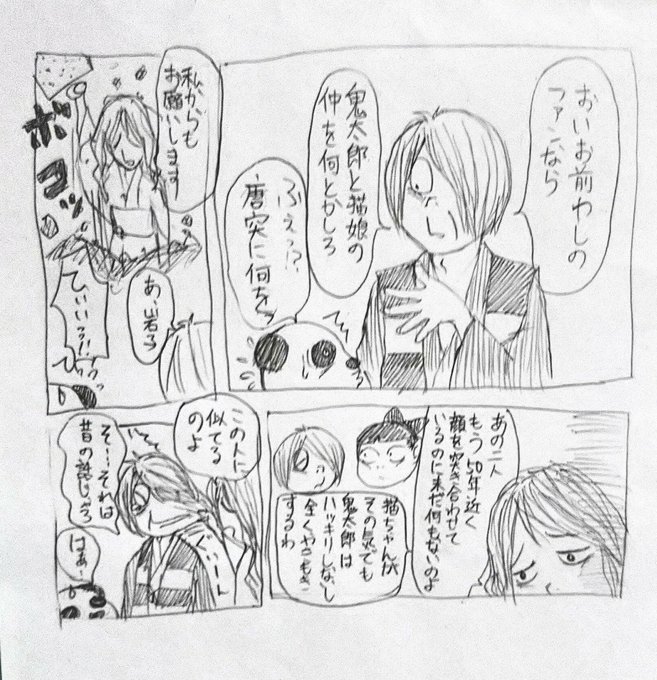 おいお前わしの
ファンなら
鬼太郎と猫娘の
仲を何とかしろ
ふぇっ!?
唐突に何を
私からも
お願いします
ボコッ
あ、岩子
ひぃぃっ!!
あの二人
もう50年近く
顔を突き合わせて
いるのに未だ何もないのよ
猫ちゃんが
その気でも
鬼太郎は
ハッキリしないし
全くやきもき
するわ
この人に
似てる
のよ
そ…それは
昔の話じゃろ
ぐいーん
はぁ…